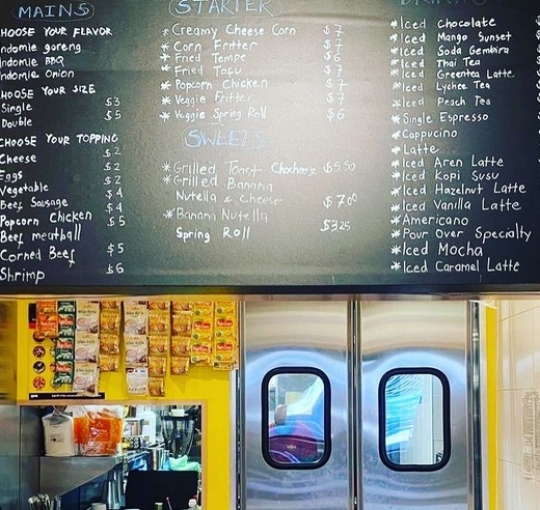 MAINS
CHOOSE YOUR FLAVOR
Indomie goreng
Indomie BBQ
Indomie Onion
CHOOSE YOUR SIZE
Single $3
Double $5
CHOOSE YOUR TOPPING
Cheese $2
Eggs $2
Vegetable $2
Beef Sausage $4
Popcorn Chicken $4
Beef meatball $5
Corned Beef $5
Shrimp $6
STARTER
*Creamy Cheese Corn $7
*Corn Fritter $7
*Fried Tempe $6
*Fried Tofu $7
*Popcorn Chicken $7
*Veggie Fritter $7
*Veggie Spring Roll $6
SWEETS
*Grilled Toast $5.50
*Grilled Banana
Nutella & Cheese $7.00
*Banana Nutella
Spring Roll $3.25
*Iced Chocolate
*Iced Mango Sunset
*Iced Soda Gembira
*Iced Thai Tea
*Iced Greentea Latte
*Iced Lychee Tea
*Iced Peach Tea
*Single Espresso
*Cappucino
*Latte
*Iced Aren Latte
*Iced Kopi Susu
*Iced Hazelnut Latte
*Iced Vanilla Latte
*Americano
*Pour Over Specialty
*Iced Mocha
*Iced Caramel Latte